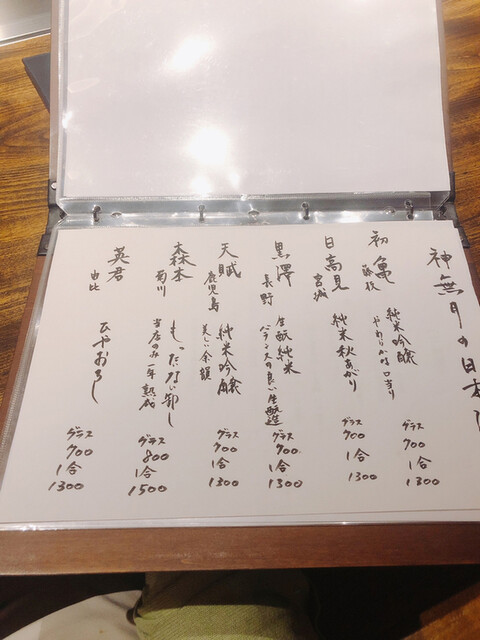 神無月の日本
初亀 藤枝
純米吟醸
やわらかな口当り
グラス
700
1合
1300
日高見 宮城
純米秋あがり
グラス
700
1合
1300
黒澤 長野
生酛純米
バランスの良い生酛造
グラス
700
1合
1300
天賦 鹿児島
純米吟醸
美しい余韻
グラス
700
1合
1300
森本 菊川
もったない卸し
当店のみ一年熟成
グラス
800
1合
1500
英君 由比
ひやおろし
グラス
700
1合
1300